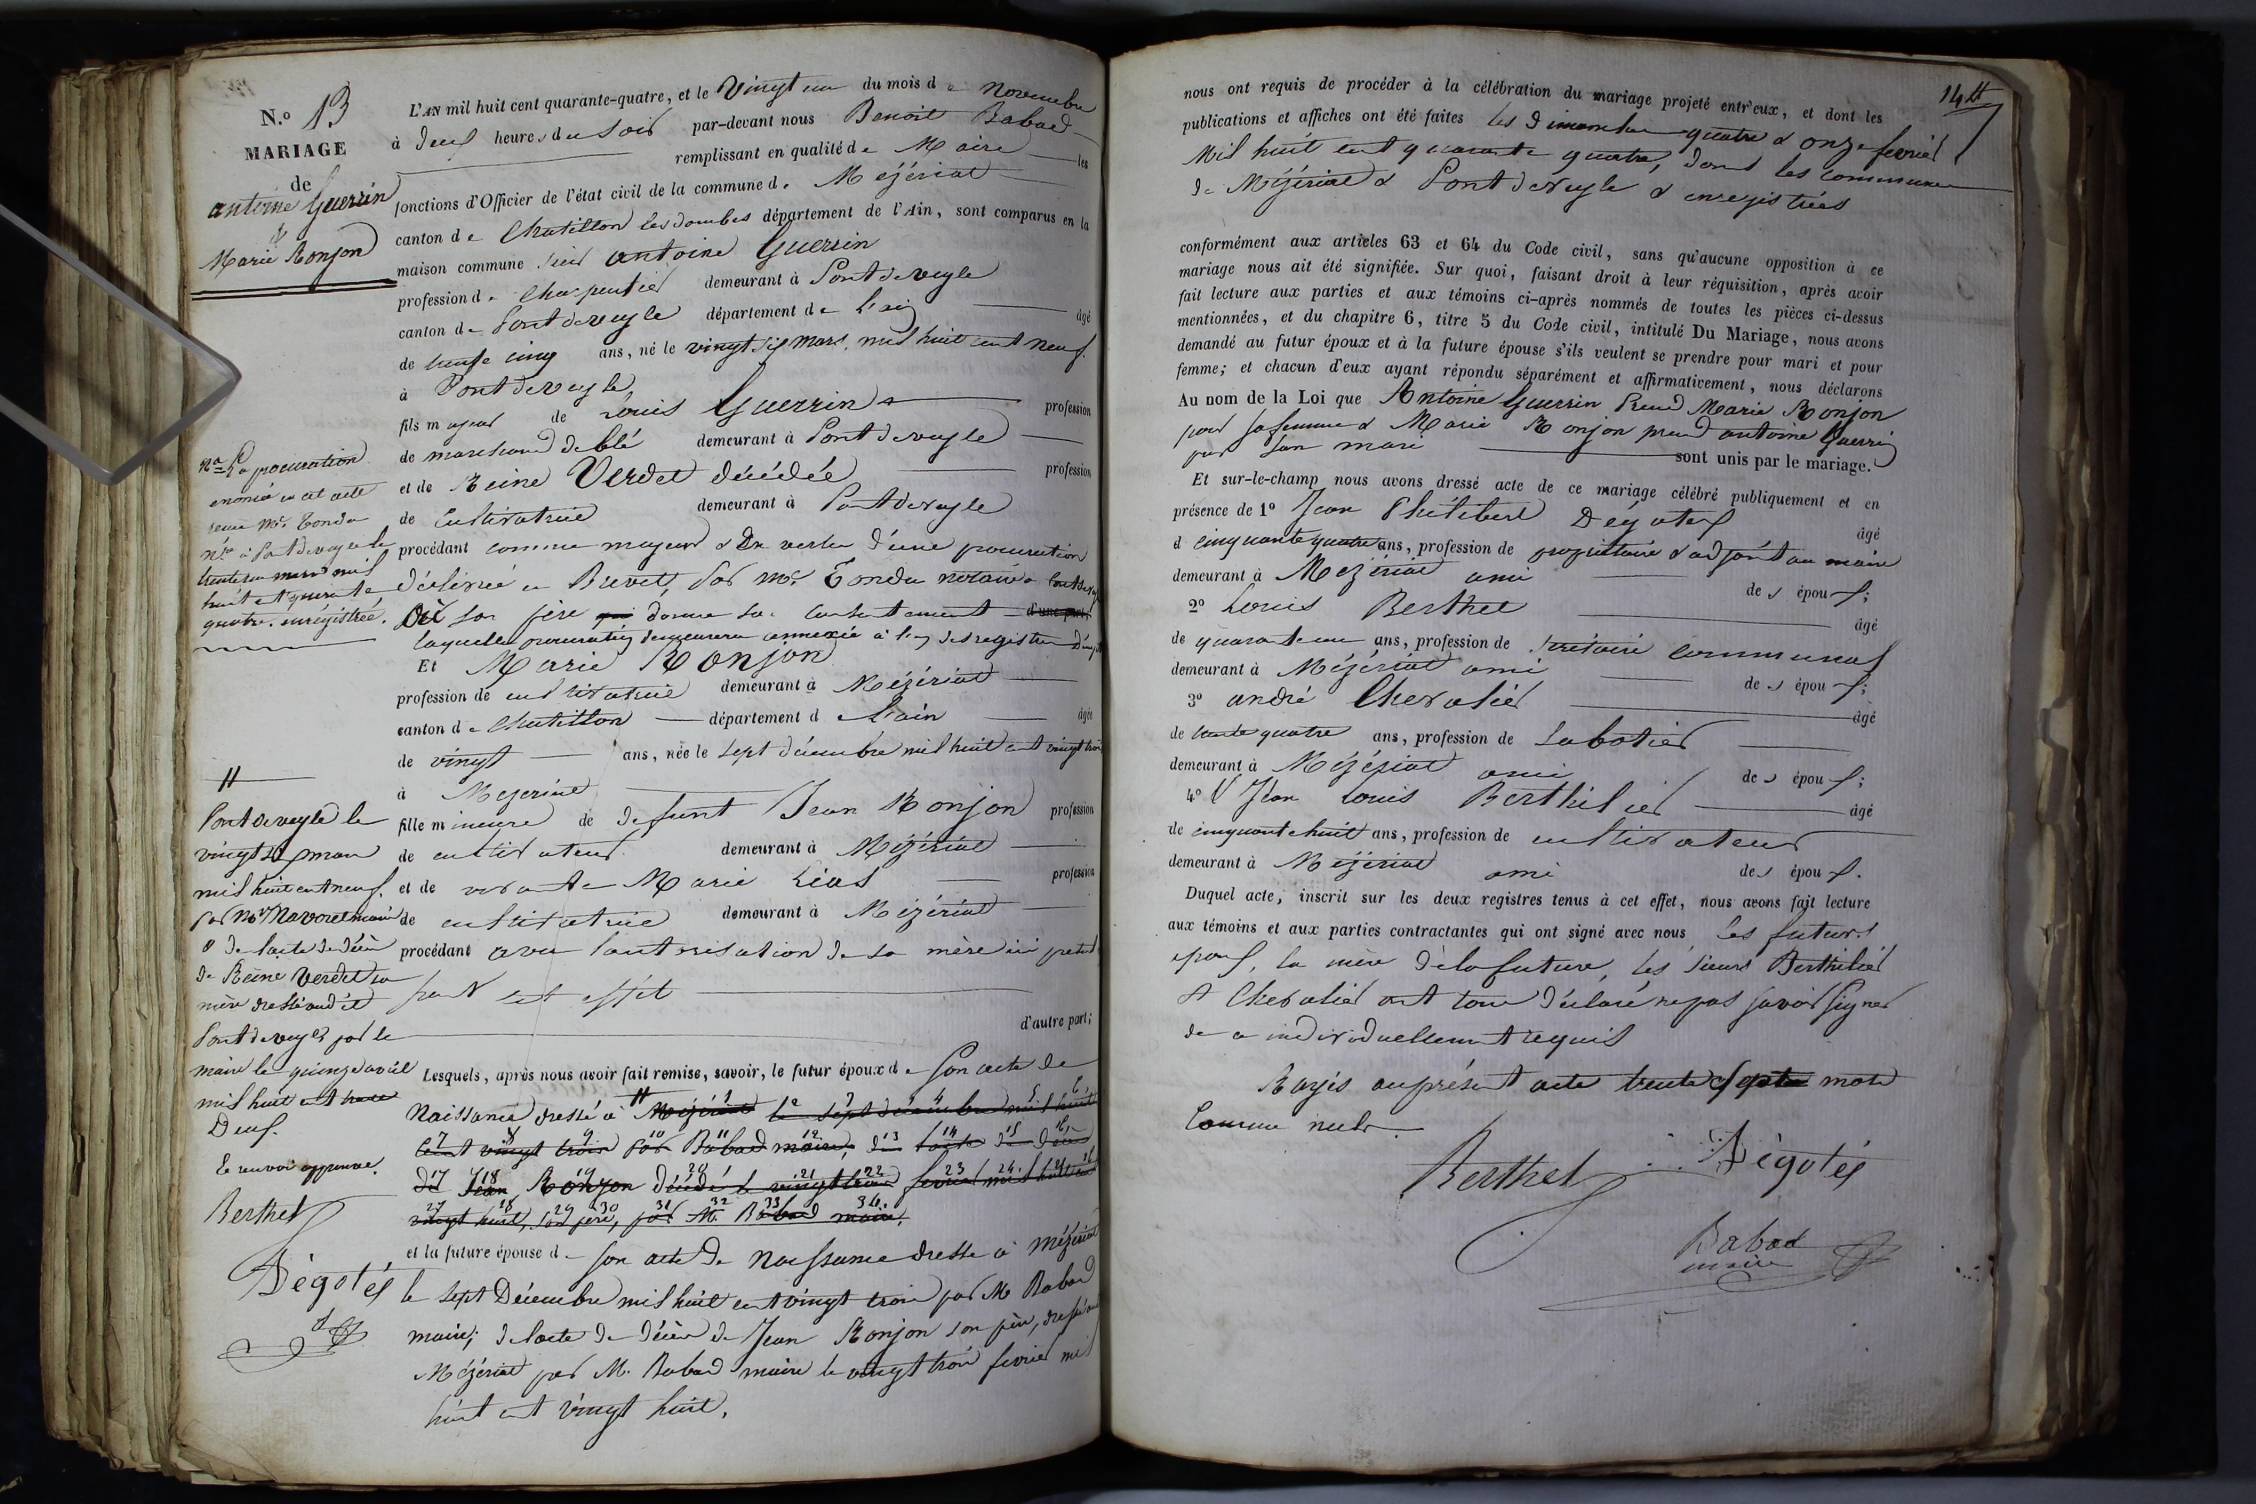 N.º 13
MARIAGE
de
antoine Guerrin
&
Marie Ronjon
L'AN mil huit cent quarante-quatre, et le Vingt un du mois de novembre
à deux heures du soir par-devant nous Benoit Babad
remplissant en qualité de Maire les
fonctions d'Officier de l'état civil de la commune de Mézériat
canton de Chatillon les dombes département de l'Ain, sont comparus en la
maison commune sieur antoine Guerrin
profession de Charpentier demeurant à Pontdeveyle
canton de Pontdeveyle département de L'ain âgé
de trente cinq ans, né le vingt six mars mil huit cent neuf
à Pontdeveyle
fils majeur de Louis Guerrin profession
de marchand de blé demeurant à Pontdeveyle
et de Reine Verdet décédée profession
de Cultivatrice demeurant à Pontdeveyle
procédant comme majeur & En vertu d'une procuration
délivrée en Brevet, par Mr. Tondu notaire à Pontdeveyle
Où son père donne son consentement
laquelle procuration demeurera annexée à l'un des registres
Et Marie Ronjon
profession de cultivatrice demeurant à Mézériat
canton de Chatillon département de L'ain âgée
de vingt ans, née le sept décembre mil huit cent vingt trois
à Mezeriat
fille mineure de defunt Jean Ronjon profession
de cultivateur demeurant à Mézériat
et de vivante Marie Lias profession
de cultivatrice demeurant à Mézériat
procédant avec l'autorisation de sa mère ici présente
pour cet effet
d'autre part;
Lesquels, après nous avoir fait remise, savoir, le futur époux de Son acte de
Naissance dressé à Mézériat le sept décembre mil huit
cent vingt trois par Babad maire, de l'acte de décès
de Jean Ronjon décédé le vingt trois fevrier mil huit cent
vingt huit, son père, par M. Babad maire.
et la future épouse de son acte de Naissance dressé à Mézériat
le sept Décembre mil huit cent vingt trois par M Babad
maire; de l'acte de décès de Jean Ronjon son père, dressé aud
Mézériat par M. Babad maire le vingt trois fevrier mil
huit cent vingt huit.
Na La procuration
enoncée en cet acte
reçue Mr. Tondu
nre à Pontdeveyle le
trente un mars mil
huit cent quarante
quatre. enrégistrée.
Pontdeveyle le
vingt six mars
mil huit cent neuf.
par Mr Navoret maire
& de l'acte de décès
de Reine Verdet sa
mère dressé audit
Pontdeveyle par le
maire le quinze avril
mil huit cent trente
Deux.
Le renvoi approuvé.
Berthet
Dégotés
144
nous ont requis de procéder à la célébration du mariage projeté entr'eux, et dont les
publications et affiches ont été faites les dimanches quatre & onze fevrier
Mil huit cent quarante quatre, dans les communes
de Mézériat & Pontdeveyle & enregistrées
conformément aux articles 63 et 64 du Code civil, sans qu'aucune opposition à ce
mariage nous ait été signifiée. Sur quoi, faisant droit à leur réquisition, après avoir
fait lecture aux parties et aux témoins ci-après nommés de toutes les pièces ci-dessus
mentionnées, et du chapitre 6, titre 5 du Code civil, intitulé Du Mariage, nous avons
demandé au futur époux et à la future épouse s'ils veulent se prendre pour mari et pour
femme; et chacun d'eux ayant répondu séparément et affirmativement, nous déclarons
Au nom de la Loi que Antoine Guerrin Prend Marie Ronjon
pour sa femme & Marie Ronjon prend antoine Guerrin
pour son mari sont unis par le mariage.
Et sur-le-champ nous avons dressé acte de ce mariage célébré publiquement et en
présence de 1º Jean Philibert Dégotés âgé
d cinquante quatre ans, profession de propriétaire & adjoint au maire
demeurant à Mezériat ami des époux;
2º Louis Berthet âgé
de quarante un ans, profession de secrétaire communal
demeurant à Mézériat ami des époux;
3º andré Chevalier âgé
de trente quatre ans, profession de Sabotier
demeurant à Mézériat ami des époux;
4º Jean Louis Berthilier âgé
de cinquante huit ans, profession de cultivateur
demeurant à Mézériat ami des époux.
Duquel acte, inscrit sur les deux registres tenus à cet effet, nous avons fait lecture
aux témoins et aux parties contractantes qui ont signé avec nous Les futurs
epoux, la mère de la future, les sieurs Berthilier
& Chevalier ont tous déclaré ne pas savoir signer
de ce individuellement requis
Rayés au présent acte trente sept mots
Comme nuls.
Berthet
Dégotés
Babad
maire